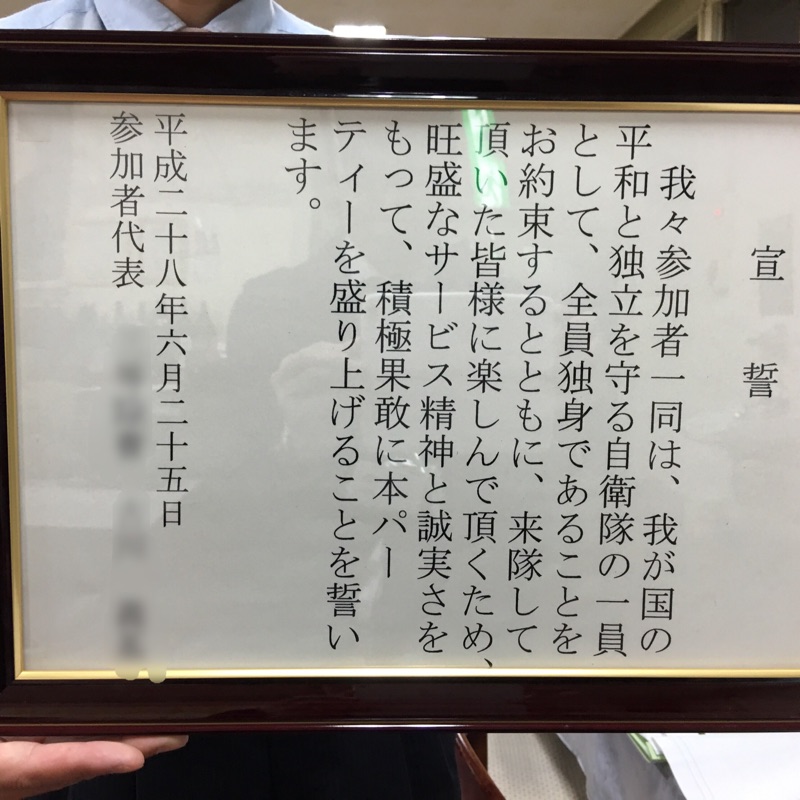 宣誓
我々参加者一同は、我が国の
平和と独立を守る自衛隊の一員
として、全員独身であることを
お約束するとともに、来隊して
頂いた皆様に楽しんで頂くため、
旺盛なサービス精神と誠実さを
もって、積極果敢に本パー
ティーを盛り上げることを誓い
ます。
平成二十八年六月二十五日
参加者代表